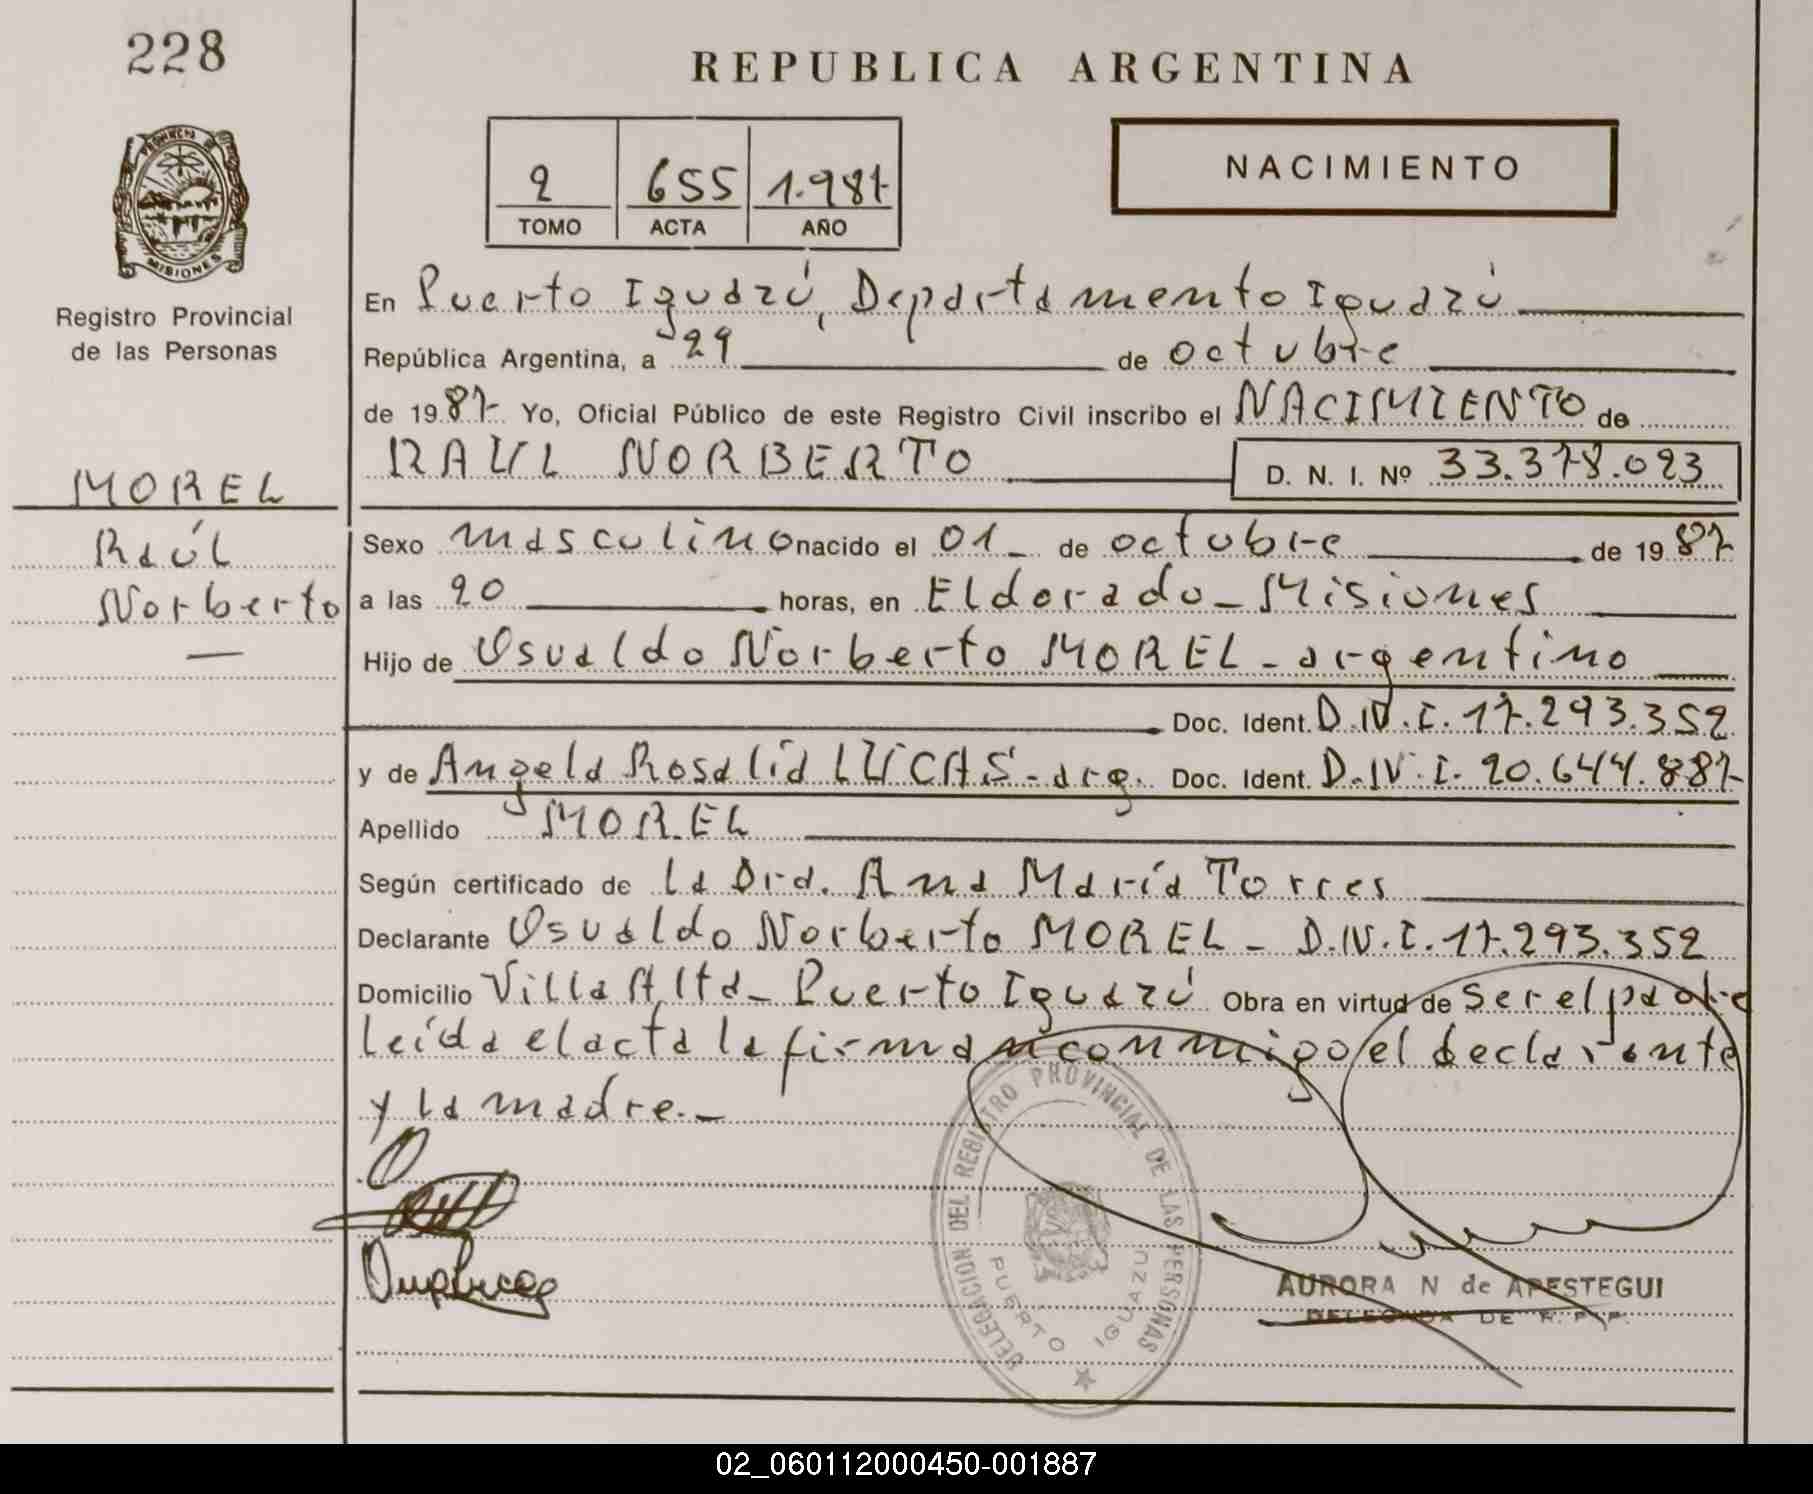 228
REPUBLICA ARGENTINA
PROVINCIA DE
MISIONES
Registro Provincial
de las Personas
2 655 1.987
TOMO ACTA AÑO
NACIMIENTO
En Puerto Iguazú, Departamento Iguazú
República Argentina, a 29 de octubre
de 1987 Yo, Oficial Público de este Registro Civil inscribo el NACIMIENTO de
RAUL NORBERTO D. N. I. Nº 33.378.023
MOREL
Raúl
Norberto
Sexo masculino nacido el 01 de octubre de 1987
a las 20 horas, en Eldorado - Misiones
Hijo de Osvaldo Norberto MOREL - argentino
Doc. Ident. D.N.I. 17.293.352
y de Angela Rosalia LUCAS - arg. Doc. Ident. D.N.I. 20.644.887
Apellido MOREL
Según certificado de la Dra. Ana María Torres
Declarante Osvaldo Norberto MOREL - D.N.I. 17.293.352
Domicilio Villa Alta - Puerto Iguazú Obra en virtud de ser el padre
leída el acta la firman conmigo el declarante
y la madre.-
DELEGACION DEL REGISTRO PROVINCIAL DE LAS PERSONAS
PUERTO IGUAZU
AURORA N de APESTEGUI
DELEGADA DE R.P.P.
02_060112000450-001887